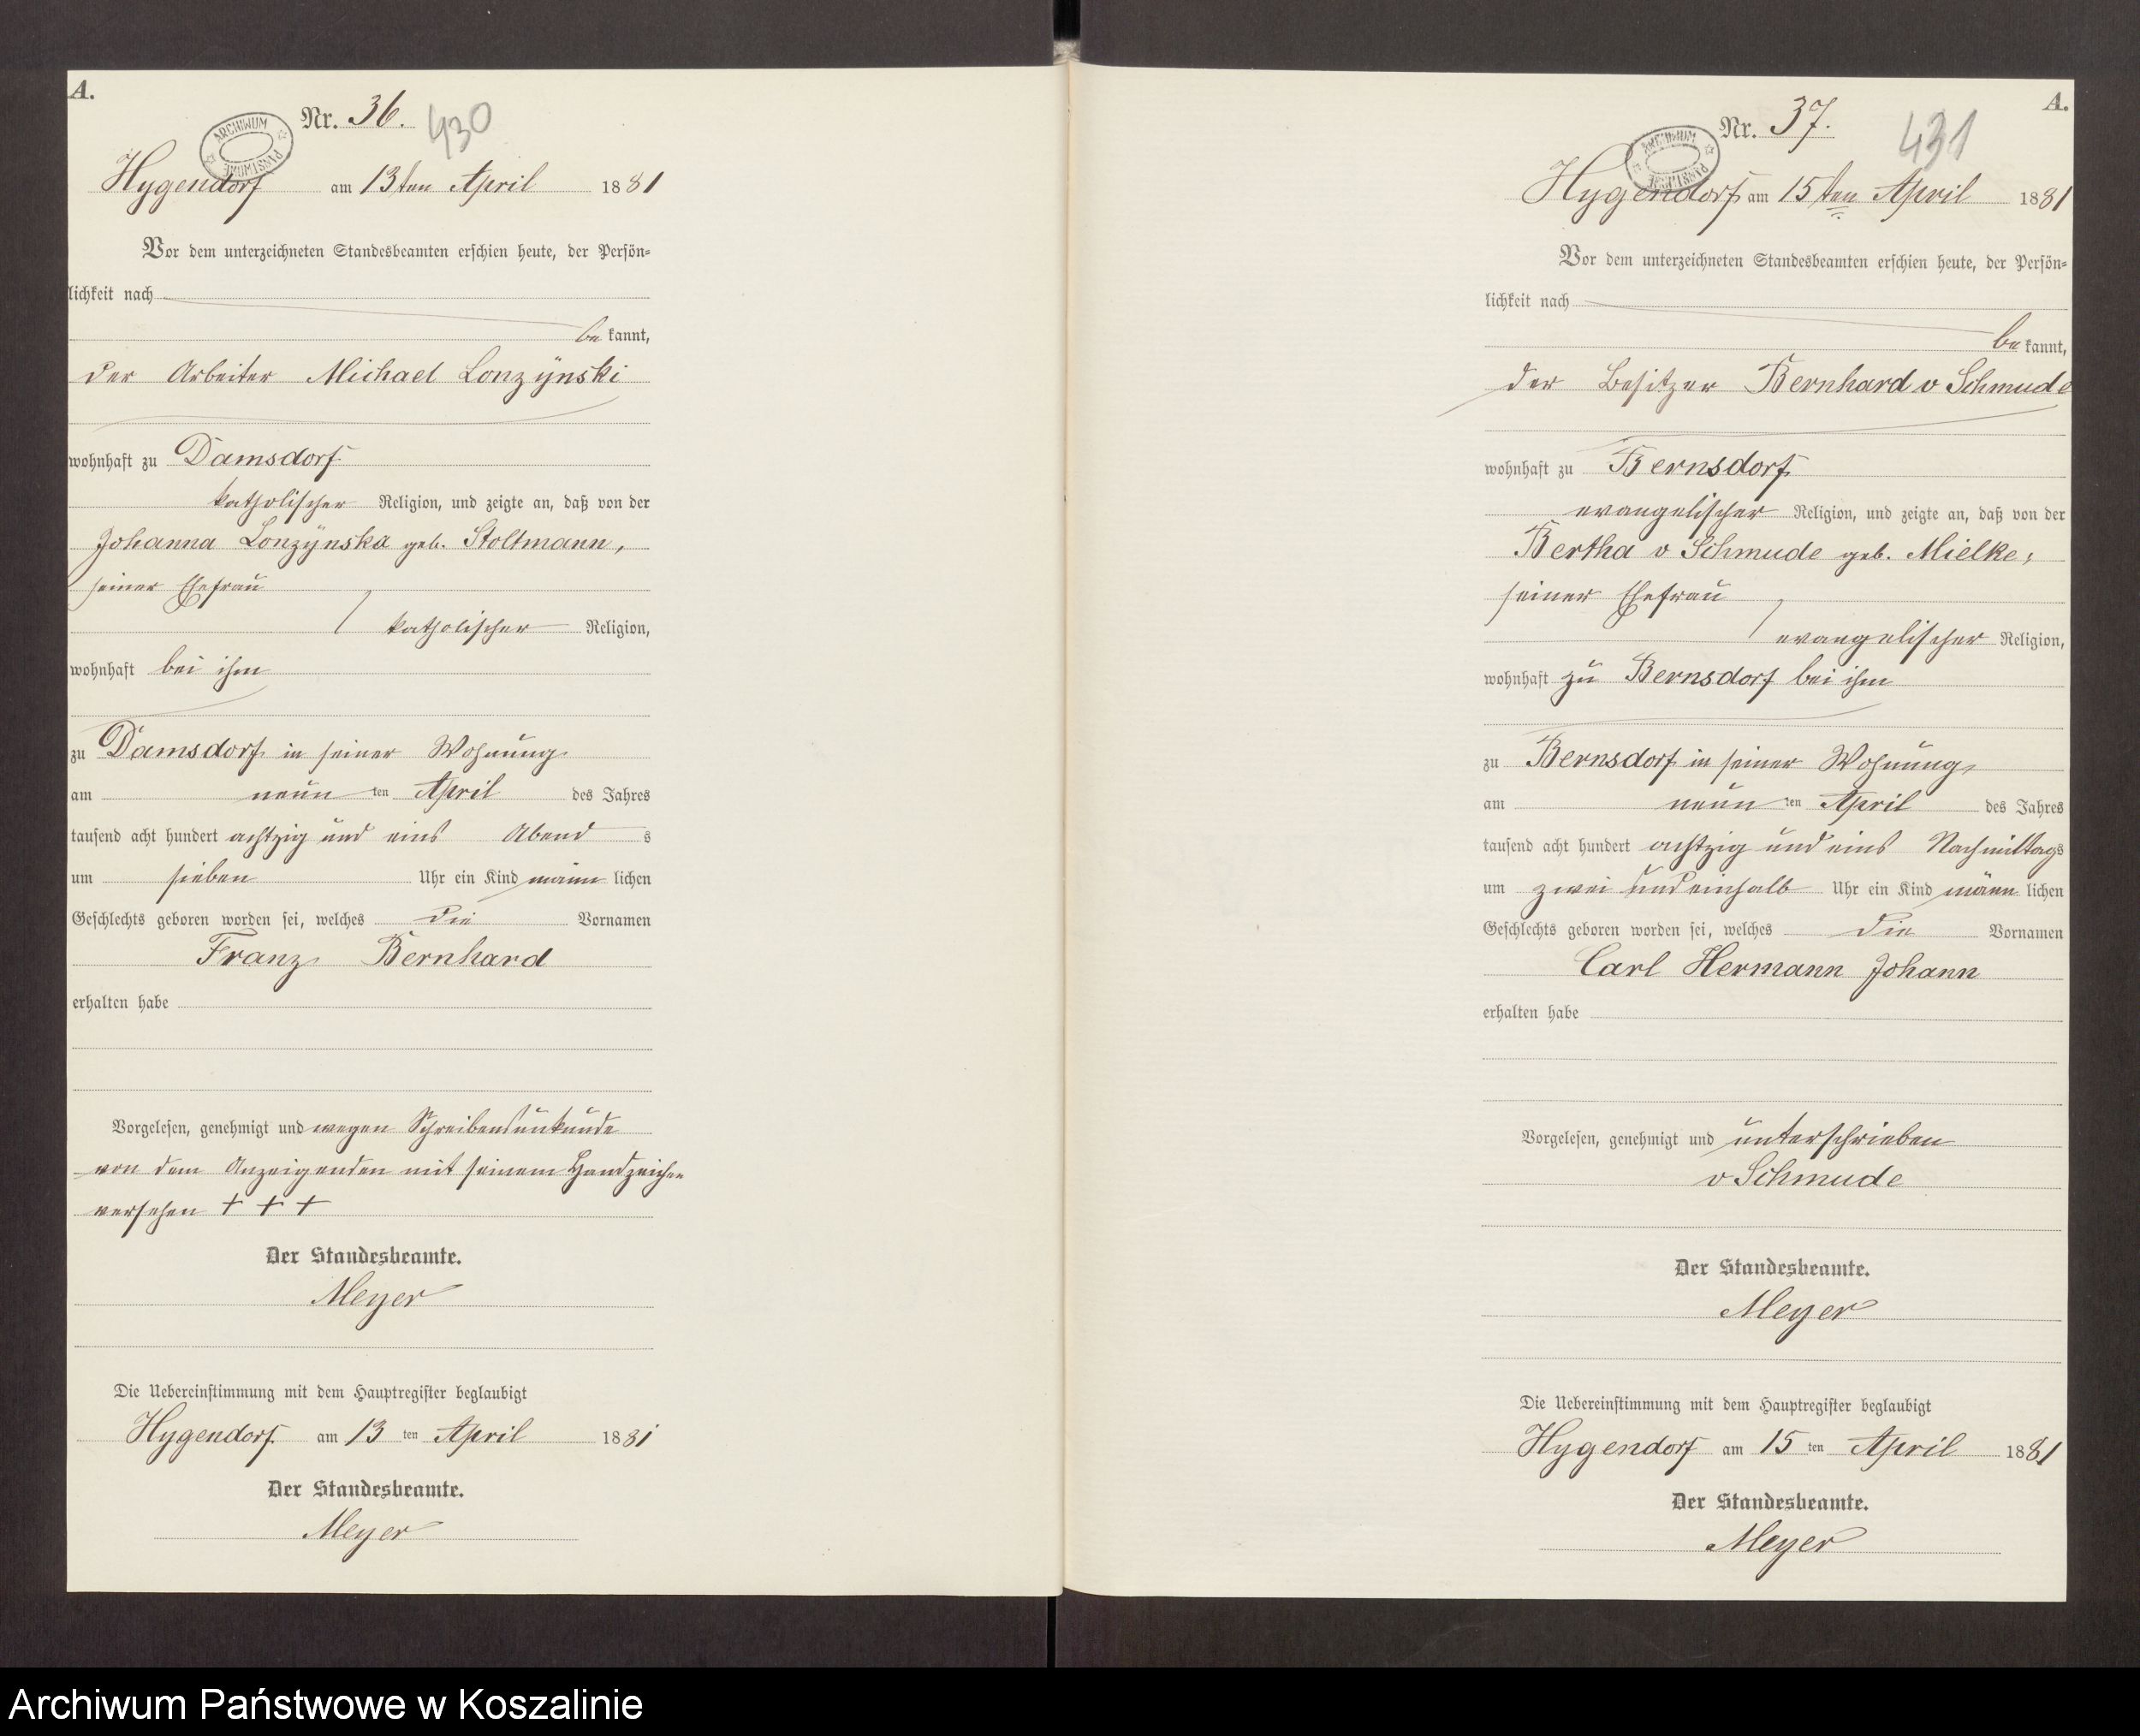 A.
Nr. 36. 430
ARCHIWUM PAŃSTWOWE
Hygendorf am 13ten April 1881
Vor dem unterzeichneten Standesbeamten erschien heute, der Persön-
lichkeit nach
be kannt,
der Arbeiter Michael Lonzÿnski
wohnhaft zu Damsdorf
katholischer Religion, und zeigte an, daß von der
Johanna Lonzÿnska geb. Stoltmann,
seiner Ehefrau
katholischer Religion,
wohnhaft bei ihm
zu Damsdorf in seiner Wohnung
am neun ten April des Jahres
tausend acht hundert achtzig und eins Abend s
um sieben Uhr ein Kind männ lichen
Geschlechts geboren worden sei, welches die Vornamen
Franz Bernhard
erhalten habe
Vorgelesen, genehmigt und wegen Schreibensunkunde
von dem Anzeigenden mit seinem Handzeichen
versehen + + +
Der Standesbeamte.
Meyer
Die Uebereinstimmung mit dem Hauptregister beglaubigt
Hygendorf am 13 ten April 1881
Der Standesbeamte.
Meyer
A.
Nr. 37. 431
ARCHIWUM PAŃSTWOWE
Hygendorf am 15ten April 1881
Vor dem unterzeichneten Standesbeamten erschien heute, der Persön-
lichkeit nach
be kannt,
der Besitzer Bernhard v Schmude
wohnhaft zu Bernsdorf
evangelischer Religion, und zeigte an, daß von der
Bertha v Schmude geb. Mielke,
seiner Ehefrau
evangelischer Religion,
wohnhaft zu Bernsdorf bei ihm
zu Bernsdorf in seiner Wohnung
am neun ten April des Jahres
tausend acht hundert achtzig und eins Nachmittags
um zwei und einhalb Uhr ein Kind männ lichen
Geschlechts geboren worden sei, welches die Vornamen
Carl Hermann Johann
erhalten habe
Vorgelesen, genehmigt und unterschrieben
v Schmude
Der Standesbeamte.
Meyer
Die Uebereinstimmung mit dem Hauptregister beglaubigt
Hygendorf am 15 ten April 1881
Der Standesbeamte.
Meyer
Archiwum Państwowe w Koszalinie